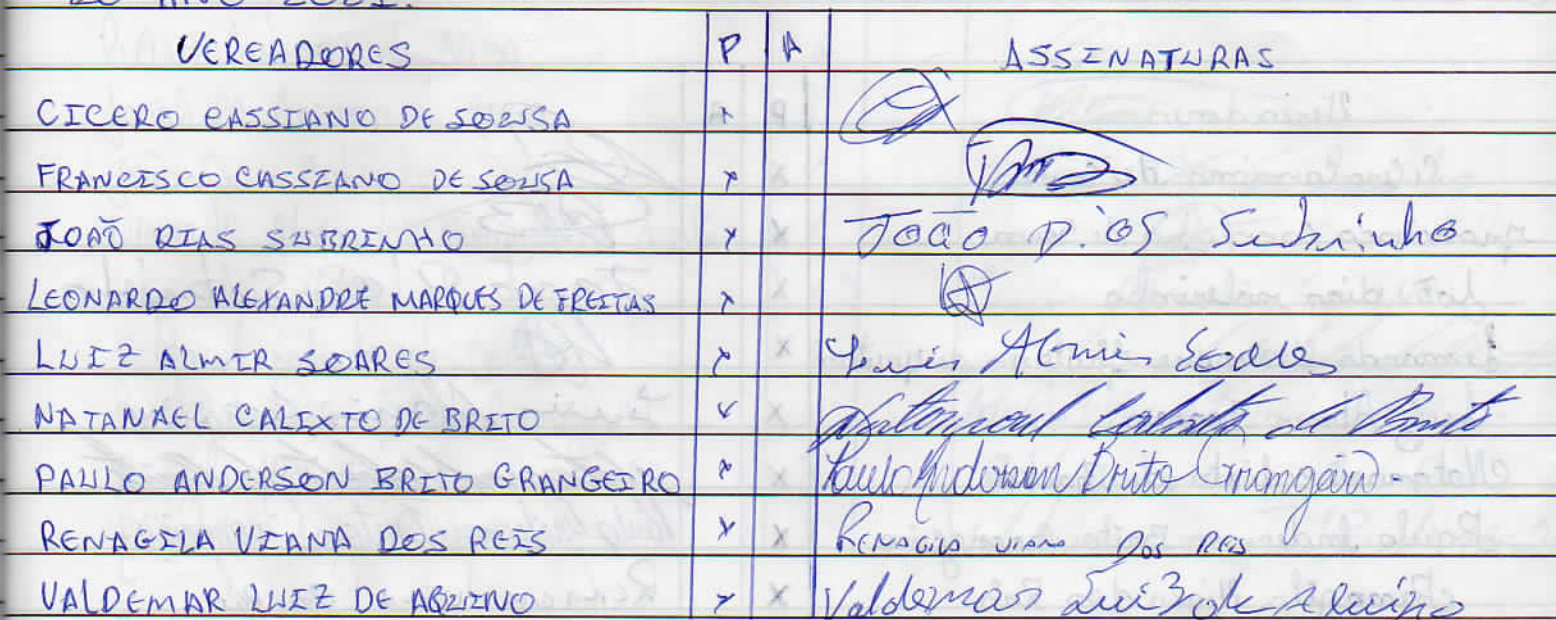 DO ANO 2021.
VEREADORES P A ASSINATURAS
CICERO CASSIANO DE SOUSA x
FRANCISCO CASSIANO DE SOUSA x
JOÃO DIAS SUBRINHO x João Dias Subrinho
LEONARDO ALEXANDRE MARQUES DE FREITAS x
LUIZ ALMIR SOARES x Luiz Almir Soares
NATANAEL CALIXTO DE BRITO x Natanael Calixto de Brito
PAULO ANDERSON BRITO GRANGEIRO x Paulo Anderson Brito Grangeiro
RENAGILA VIANA DOS REIS x RENAGILA VIANA DOS REIS
VALDEMAR LUIZ DE AQUINO x Valdemar Luiz de Aquino